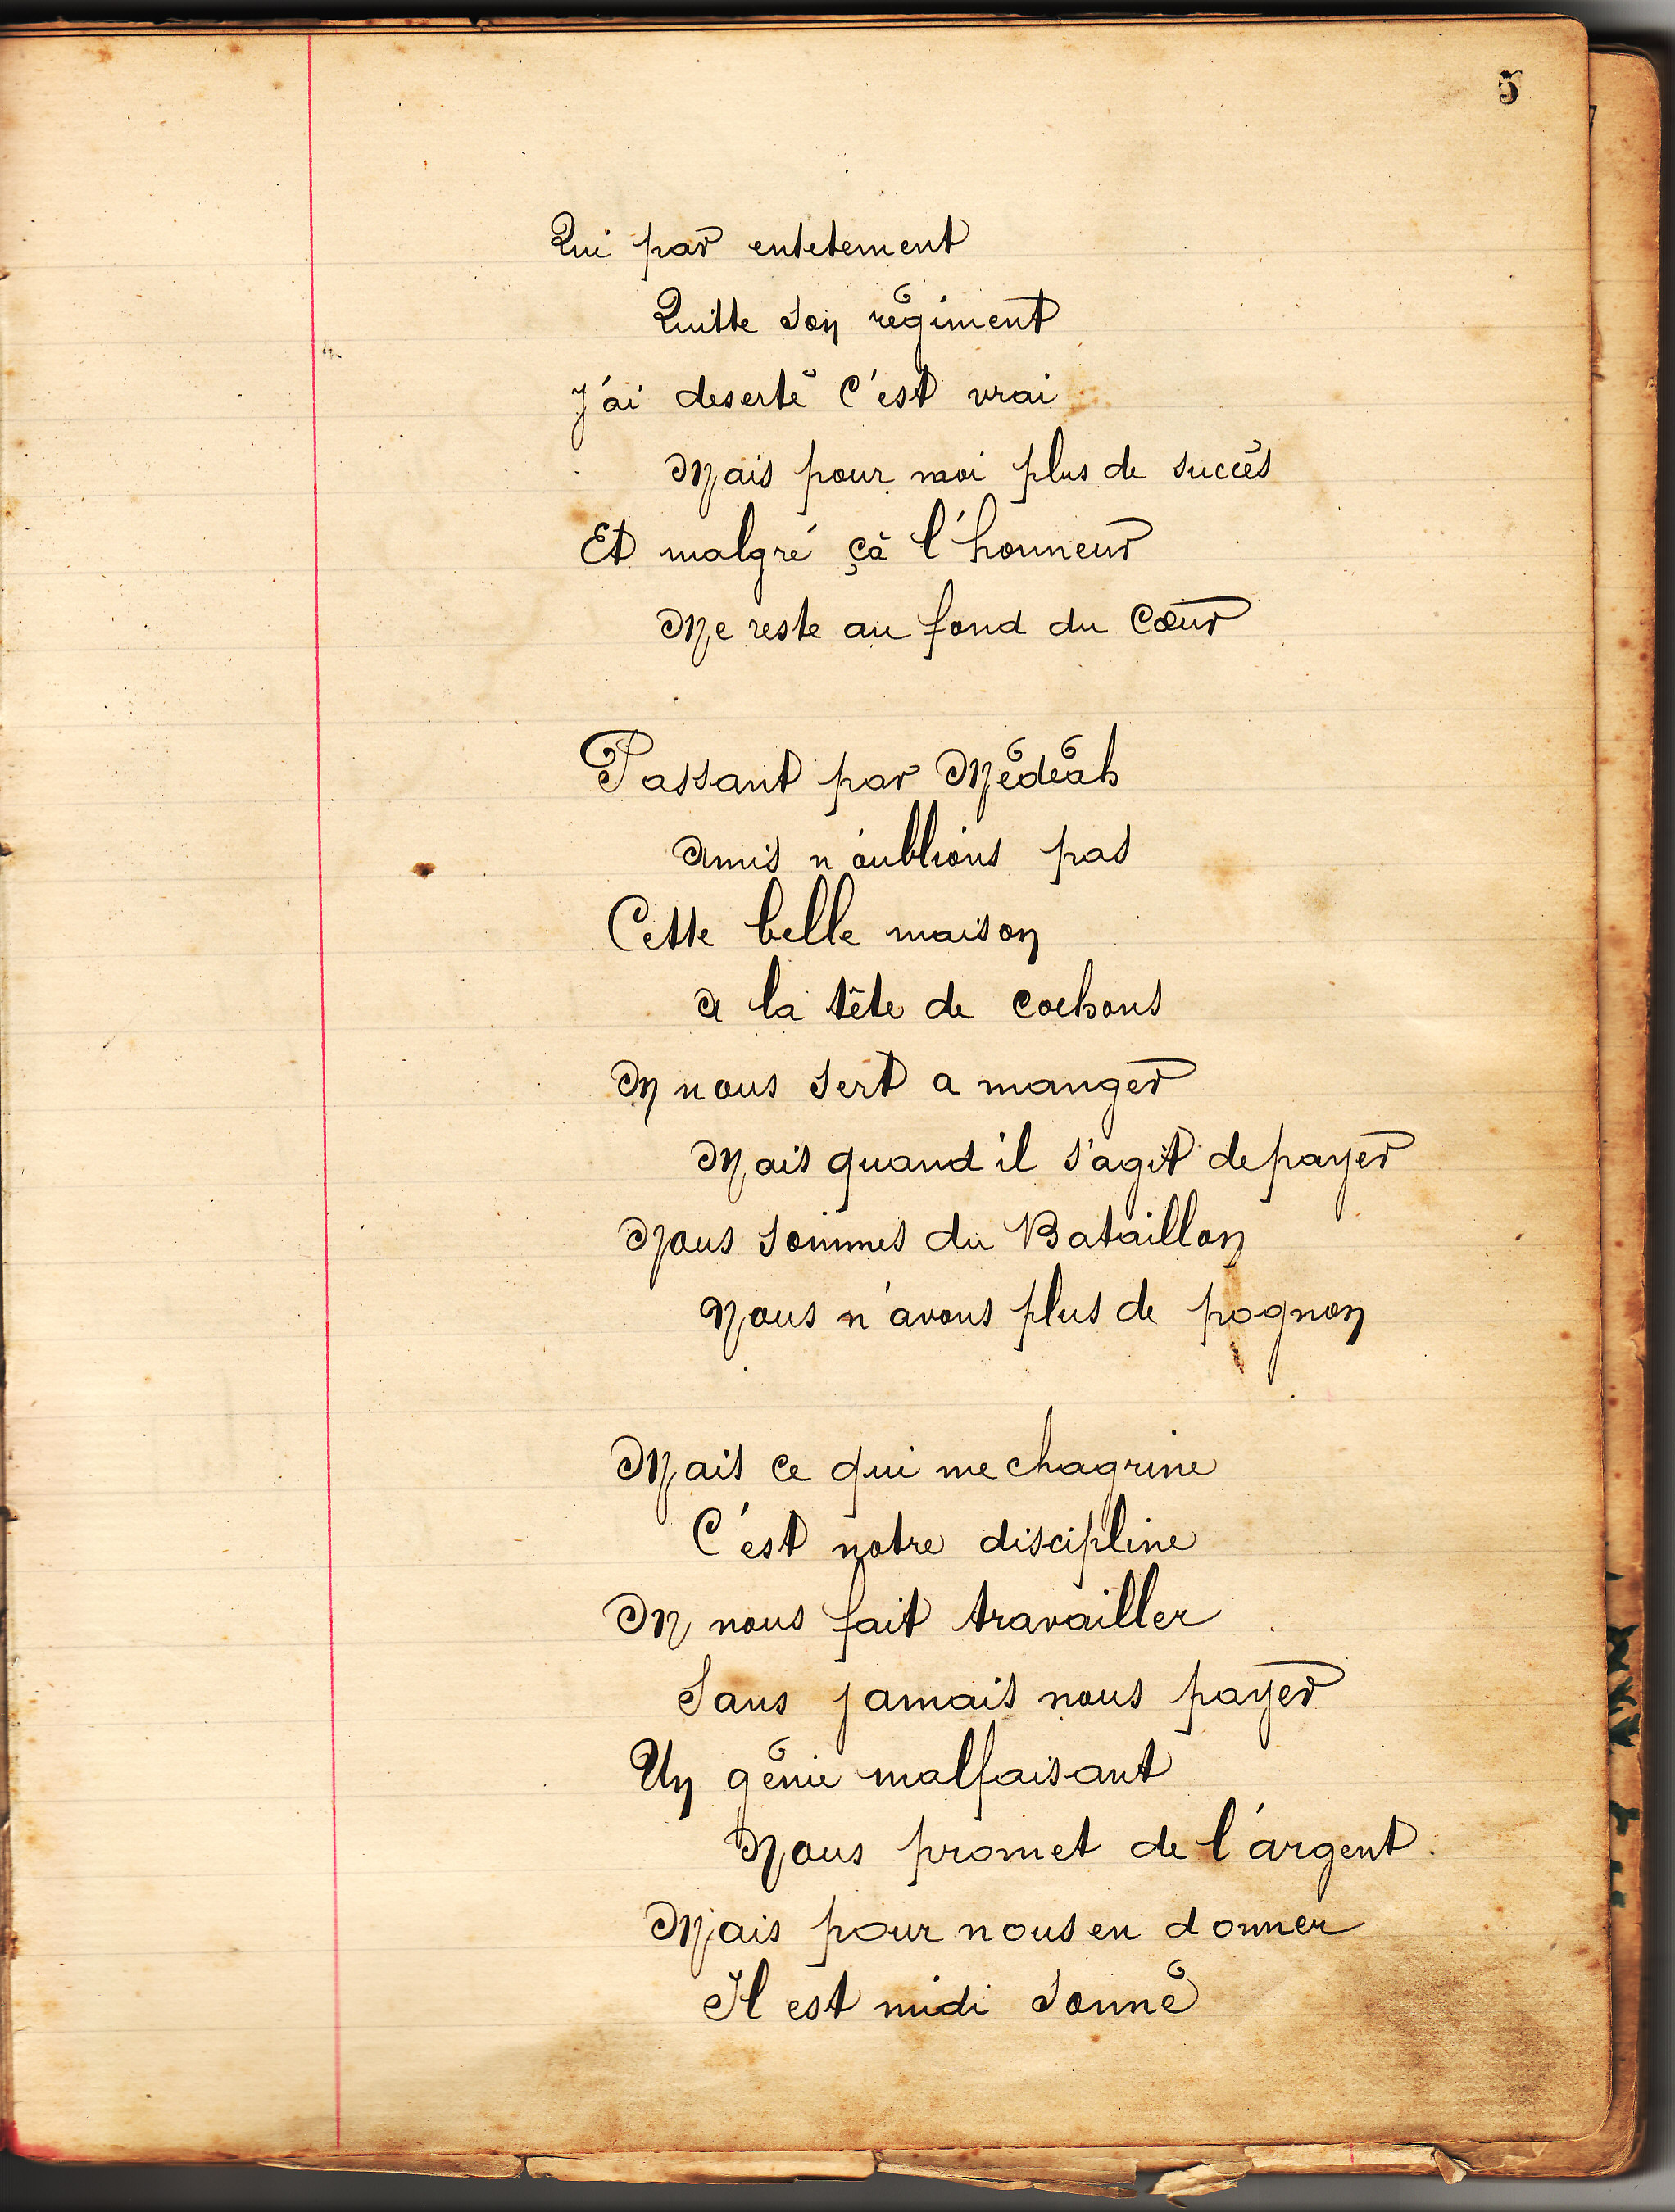 5
Qui par entetement
Quitte son régiment
J'ai deserté C'est vrai
Mais pour moi plus de succès
Et malgré çà l'honneur
Me reste au fond du Cœur
Passant par Médéah
Amis n'oublions pas
Cette belle maison
A la tête de cochons
On nous sert a manger
Mais quand il s'agit de payer
Nous sommes du Bataillon
Nous n'avons plus de pognon
Mais ce qui me chagrine
C'est notre discipline
On nous fait travailler
Sans jamais nous payer
Un génie malfaisant
Nous promet de l'argent.
Mais pour nous en donner
Il est midi Sonné